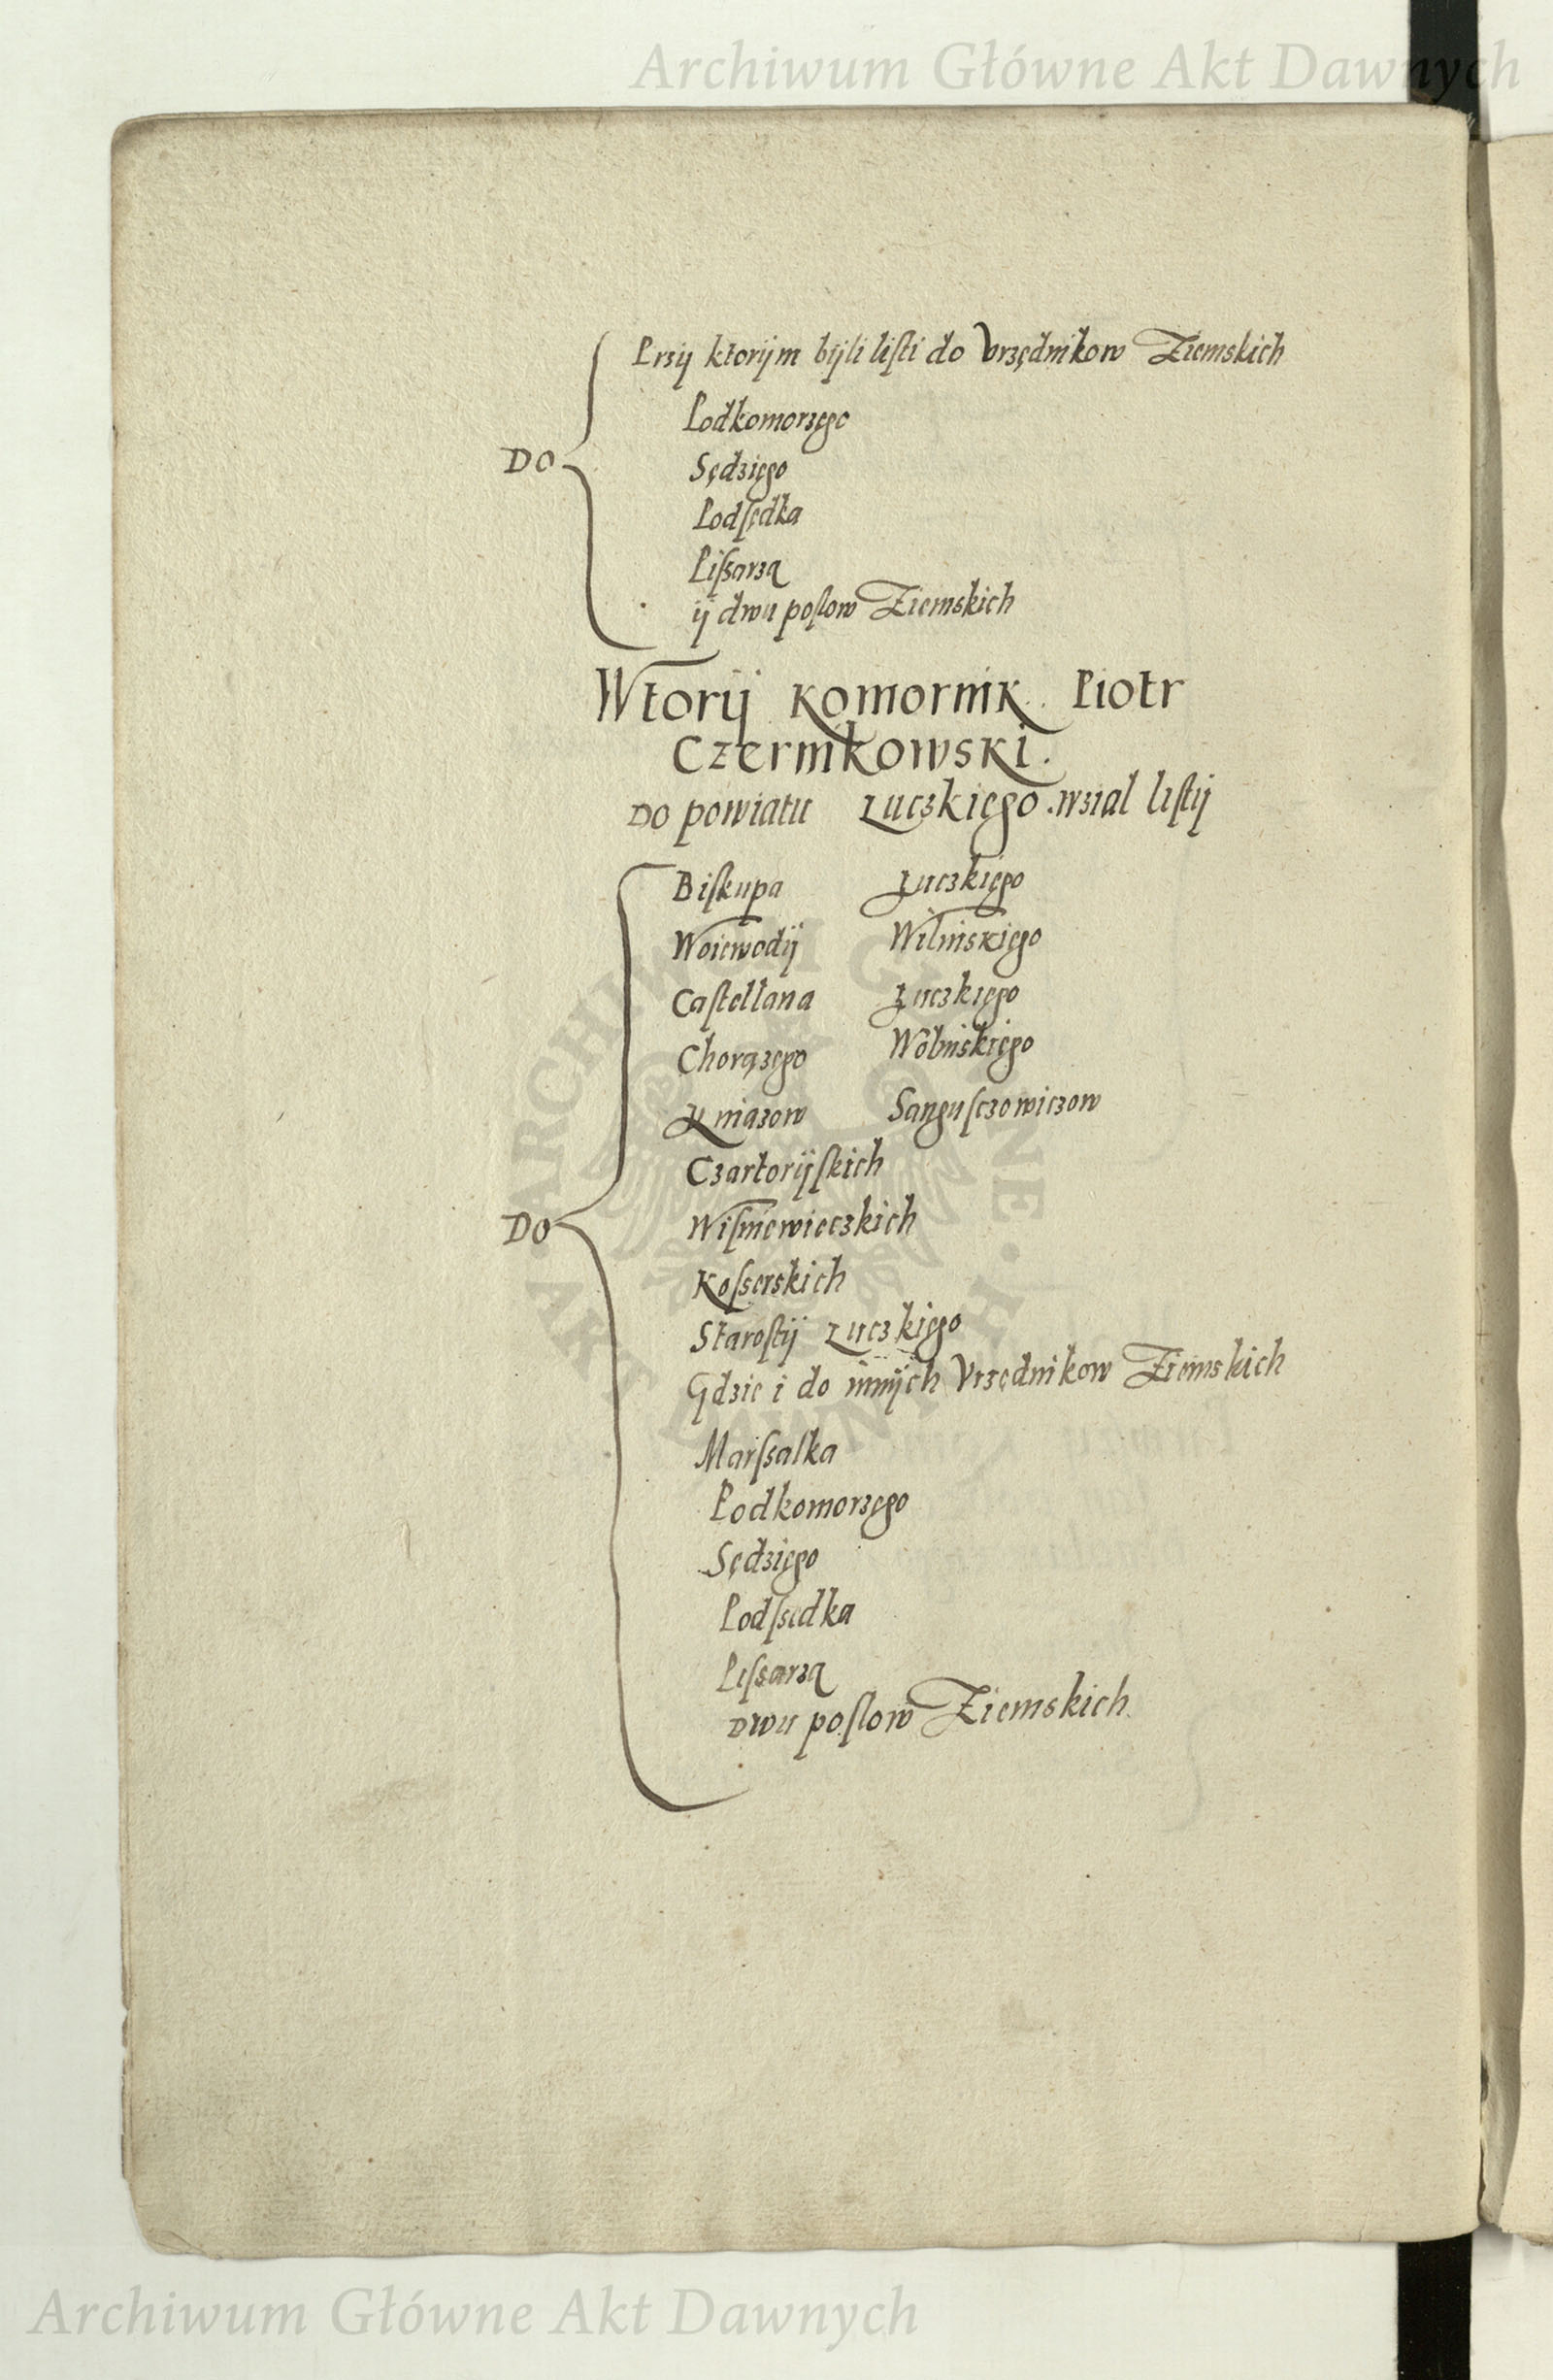 Archiwum Główne Akt Dawnych
Przÿ ktorÿm bÿli liſti do Vrzędnikow Ziemskich
Podkomorzęgo
DO
Sędzięgo
Podſędka
Piſsarzą
ÿ dwu poſlow Ziemskich
Wtorÿ Komornik. Piotr
Czernikowski.
Do powiatu Łuczkięgo. wzial liſtÿ
Biſkupa Łuczkięgo
Woiewodÿ Wilinskięgo
Caſtellana Łuczkięgo
Chorązęgo Wolinskięgo
Kniazow Sanguſczowiczow
Czartorÿſkich
DO
Wiſniewieczkich
Koſserskich
Staroſtÿ Łuczkięgo
Gdzie i do innÿch Vrzędnikow Ziemskich
Marſsalka
Podkomorzęgo
Sędzięgo
Podſsedka
Piſsarzą
Dwu poſlow Ziemskich
ARCHIWUM GŁÓWNE · AKT DAWNYCH
Archiwum Główne Akt Dawnych